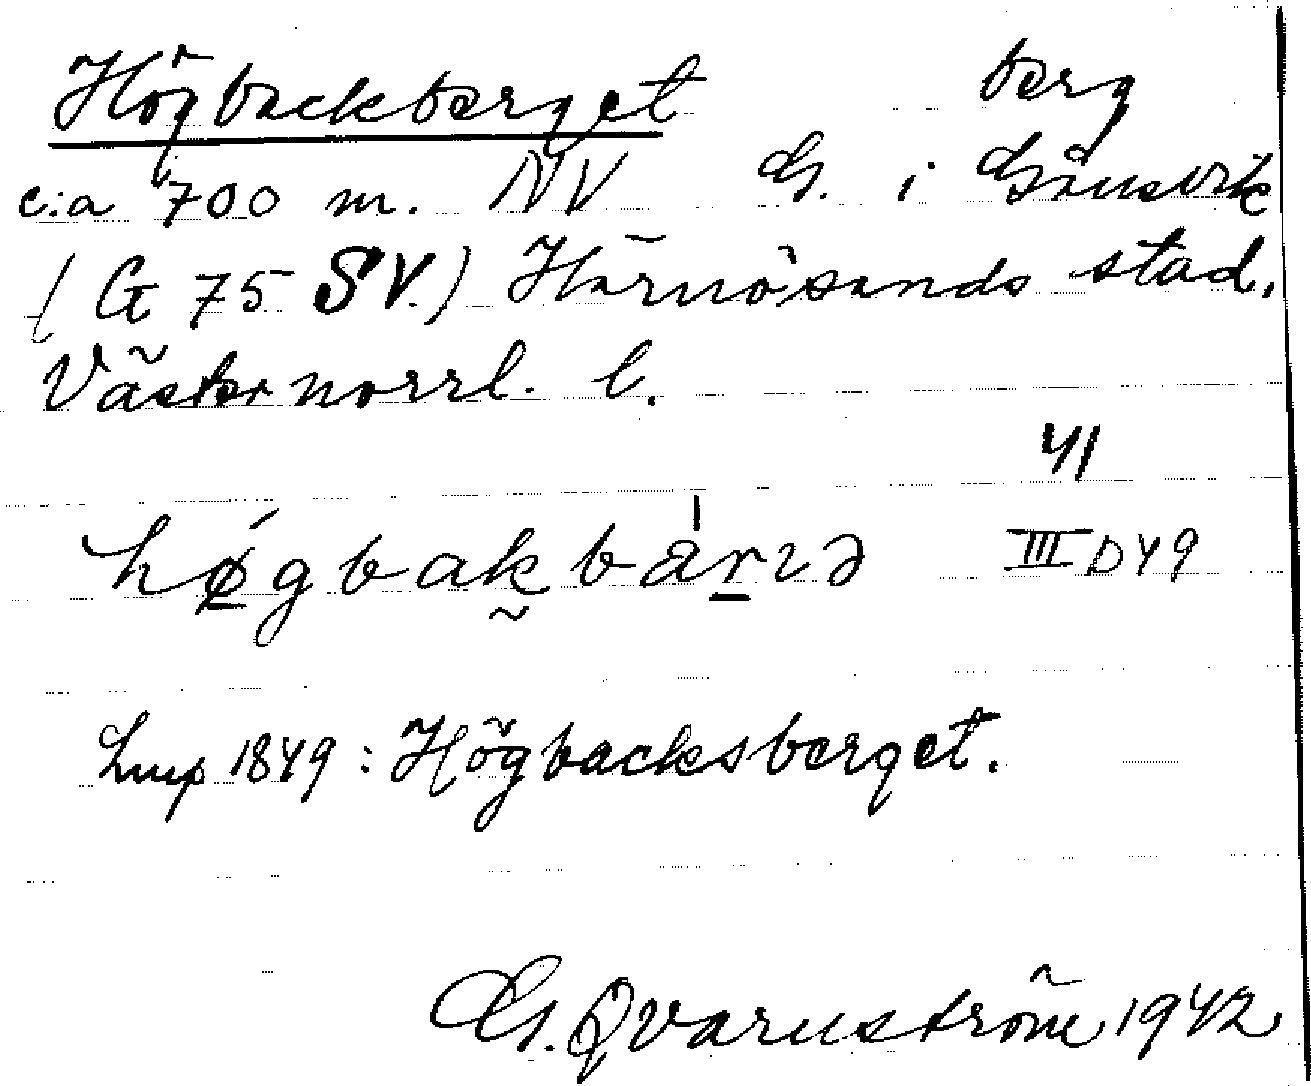 Högbackberget berg
c:a 700 m. NV G. i Gånsvik
(G 75 SV.) Härnösands stad.
Västernorrl. l.
41
høgbakbarɩə III D49
Lmp 1849: Högbacksberget.
G. Qvarnström 1942